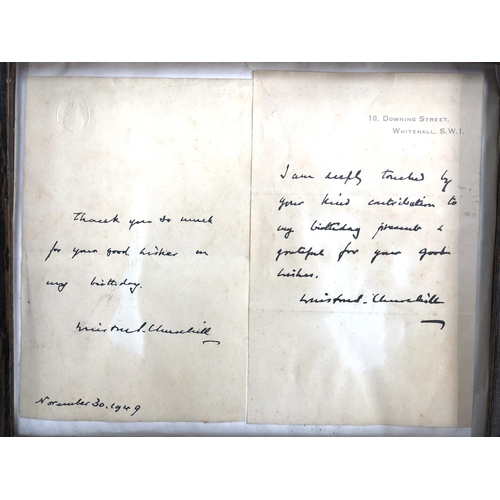 Thank you so much
for your good wishes on
my birthday.
Winston S. Churchill
November 30. 1949
10, Downing Street,
Whitehall, S.W.1.
I am deeply touched by
your kind contribution to
my birthday present &
grateful for your good
wishes.
Winston S. Churchill